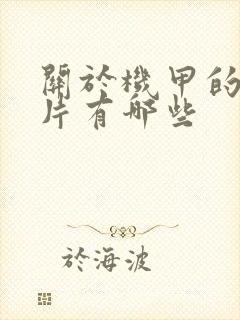 關於機甲的
片有哪些
於海波